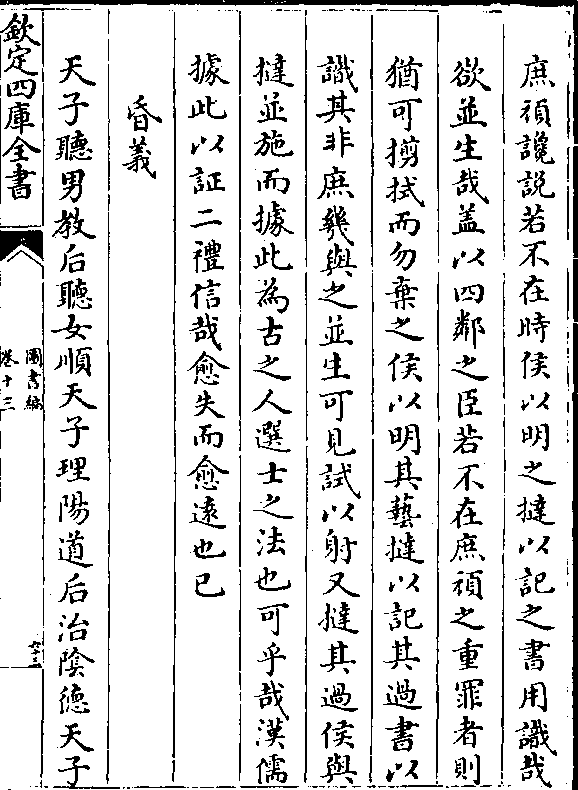 庶頑讒說若不在時侯以明之撻以記之書用識哉
欲並生哉盖以四鄰之臣若不在庶頑之重罪者則
猶可搢拭而勿棄之侯以明其藝撻以記其過書以
識其非庶幾與之並生可見試以射又撻其過侯與
撻並施而據此為古之人選士之法也可乎哉漢儒
據此以証二禮信哉愈失而愈遠也已
昏義
天子聽男教后聽女順天子理陽道后治隂德天子
欽定四庫全書
圖書編
卷十三
六十三